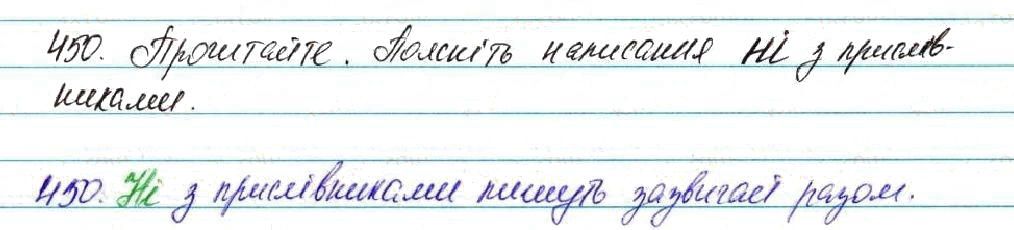 450. Прочитайте. Поясніть написання ні з прислів-
никами.
450. Ні з прислівниками пишуть зазвичай разом.